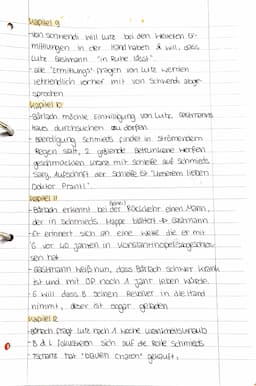 Kapitel 9
-von Schwendi will Lutz bei den weiteren Er-
mittlungen in der Hand haben & will, dass
Lutz Gastmann "in Ruhe lässt".
-alle "Ermittlungs"-fragen von Lutz werden
letztendlich vorher mit von Schwendi abge-
sprochen
Kapitel 10
-Bärlach möchte Einwilligung von Lutz, Gastmanns
Haus durchsuchen zu dürfen.
-Beerdigung Schmieds findet in strömendem
Regen statt, 2 Betrunkene werfen
geschmückten Kranz mit Schleife auf Schmieds
Sarg, Aufschrift der Schleife ist "Unserem lieben
Doktor Prantl".
Kapitel 11
-Bärlach erkennt bei der Rückkehr einen Mann,
der in Schmieds Mappe blättert → Gastmann
-Er erinnert sich an eine Wette die er mit
G vor 40 Jahren in Konstantinopel abgeschlos-
sen hat
-Gastmann weiß nun, dass Bärlach schwer krank
ist und mit OP noch 1 Jahr leben würde.
-G will dass B seinen Revolver in die Hand
nimmt, dieser ist sogar geladen
Kapitel 12
-Bärlach fragt Lutz nach 1 Woche Krankheitsurlaub
-B & L fokussieren sich auf die Rolle Schmieds
-Tschanz hat "blauen Charon" gekauft,